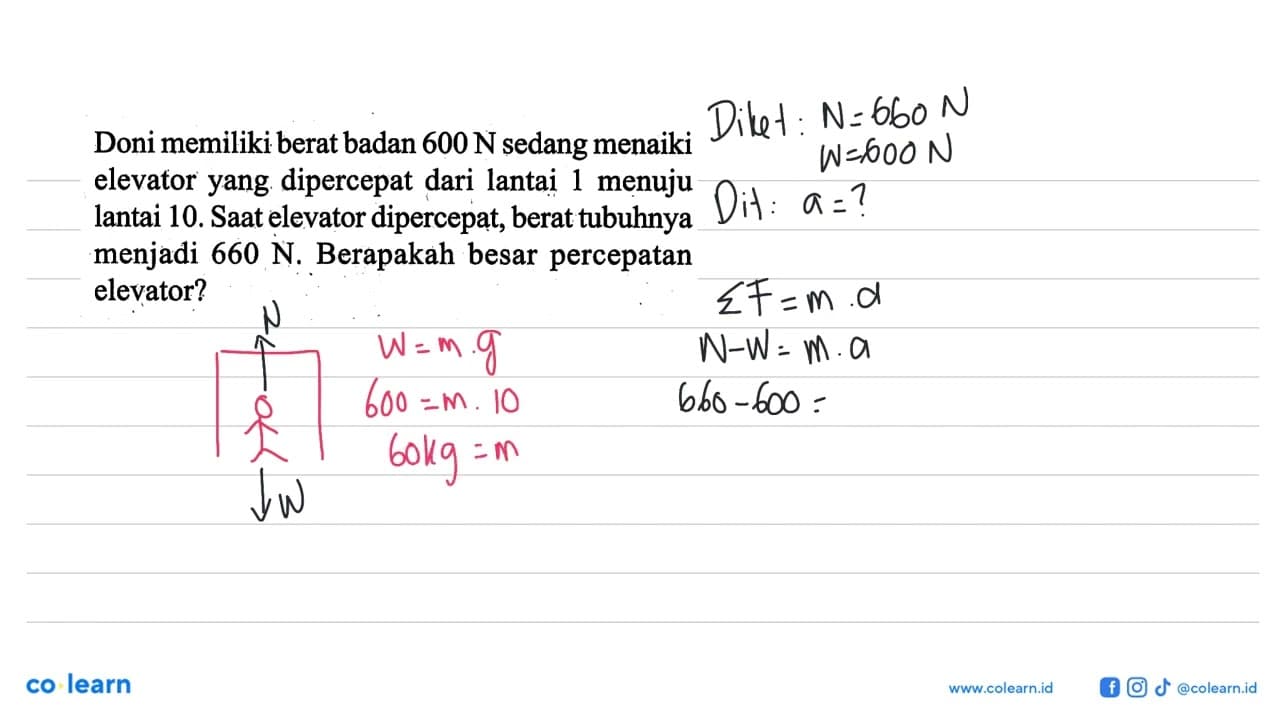 Doni memiliki berat badan 600 N sedang menaiki
elevator yang dipercepat dari lantai 1 menuju
lantai 10. Saat elevator dipercepat, berat tubuhnya
menjadi 660 N. Berapakah besar percepatan
elevator?
Diket : N = 660 N
W = 600 N
Dit : a = ?
N
W
W = m . g
600 = m . 10
60kg = m
ΣF = m . a
N - W = m . a
660 - 600 =
co learn
www.colearn.id
@colearn.id